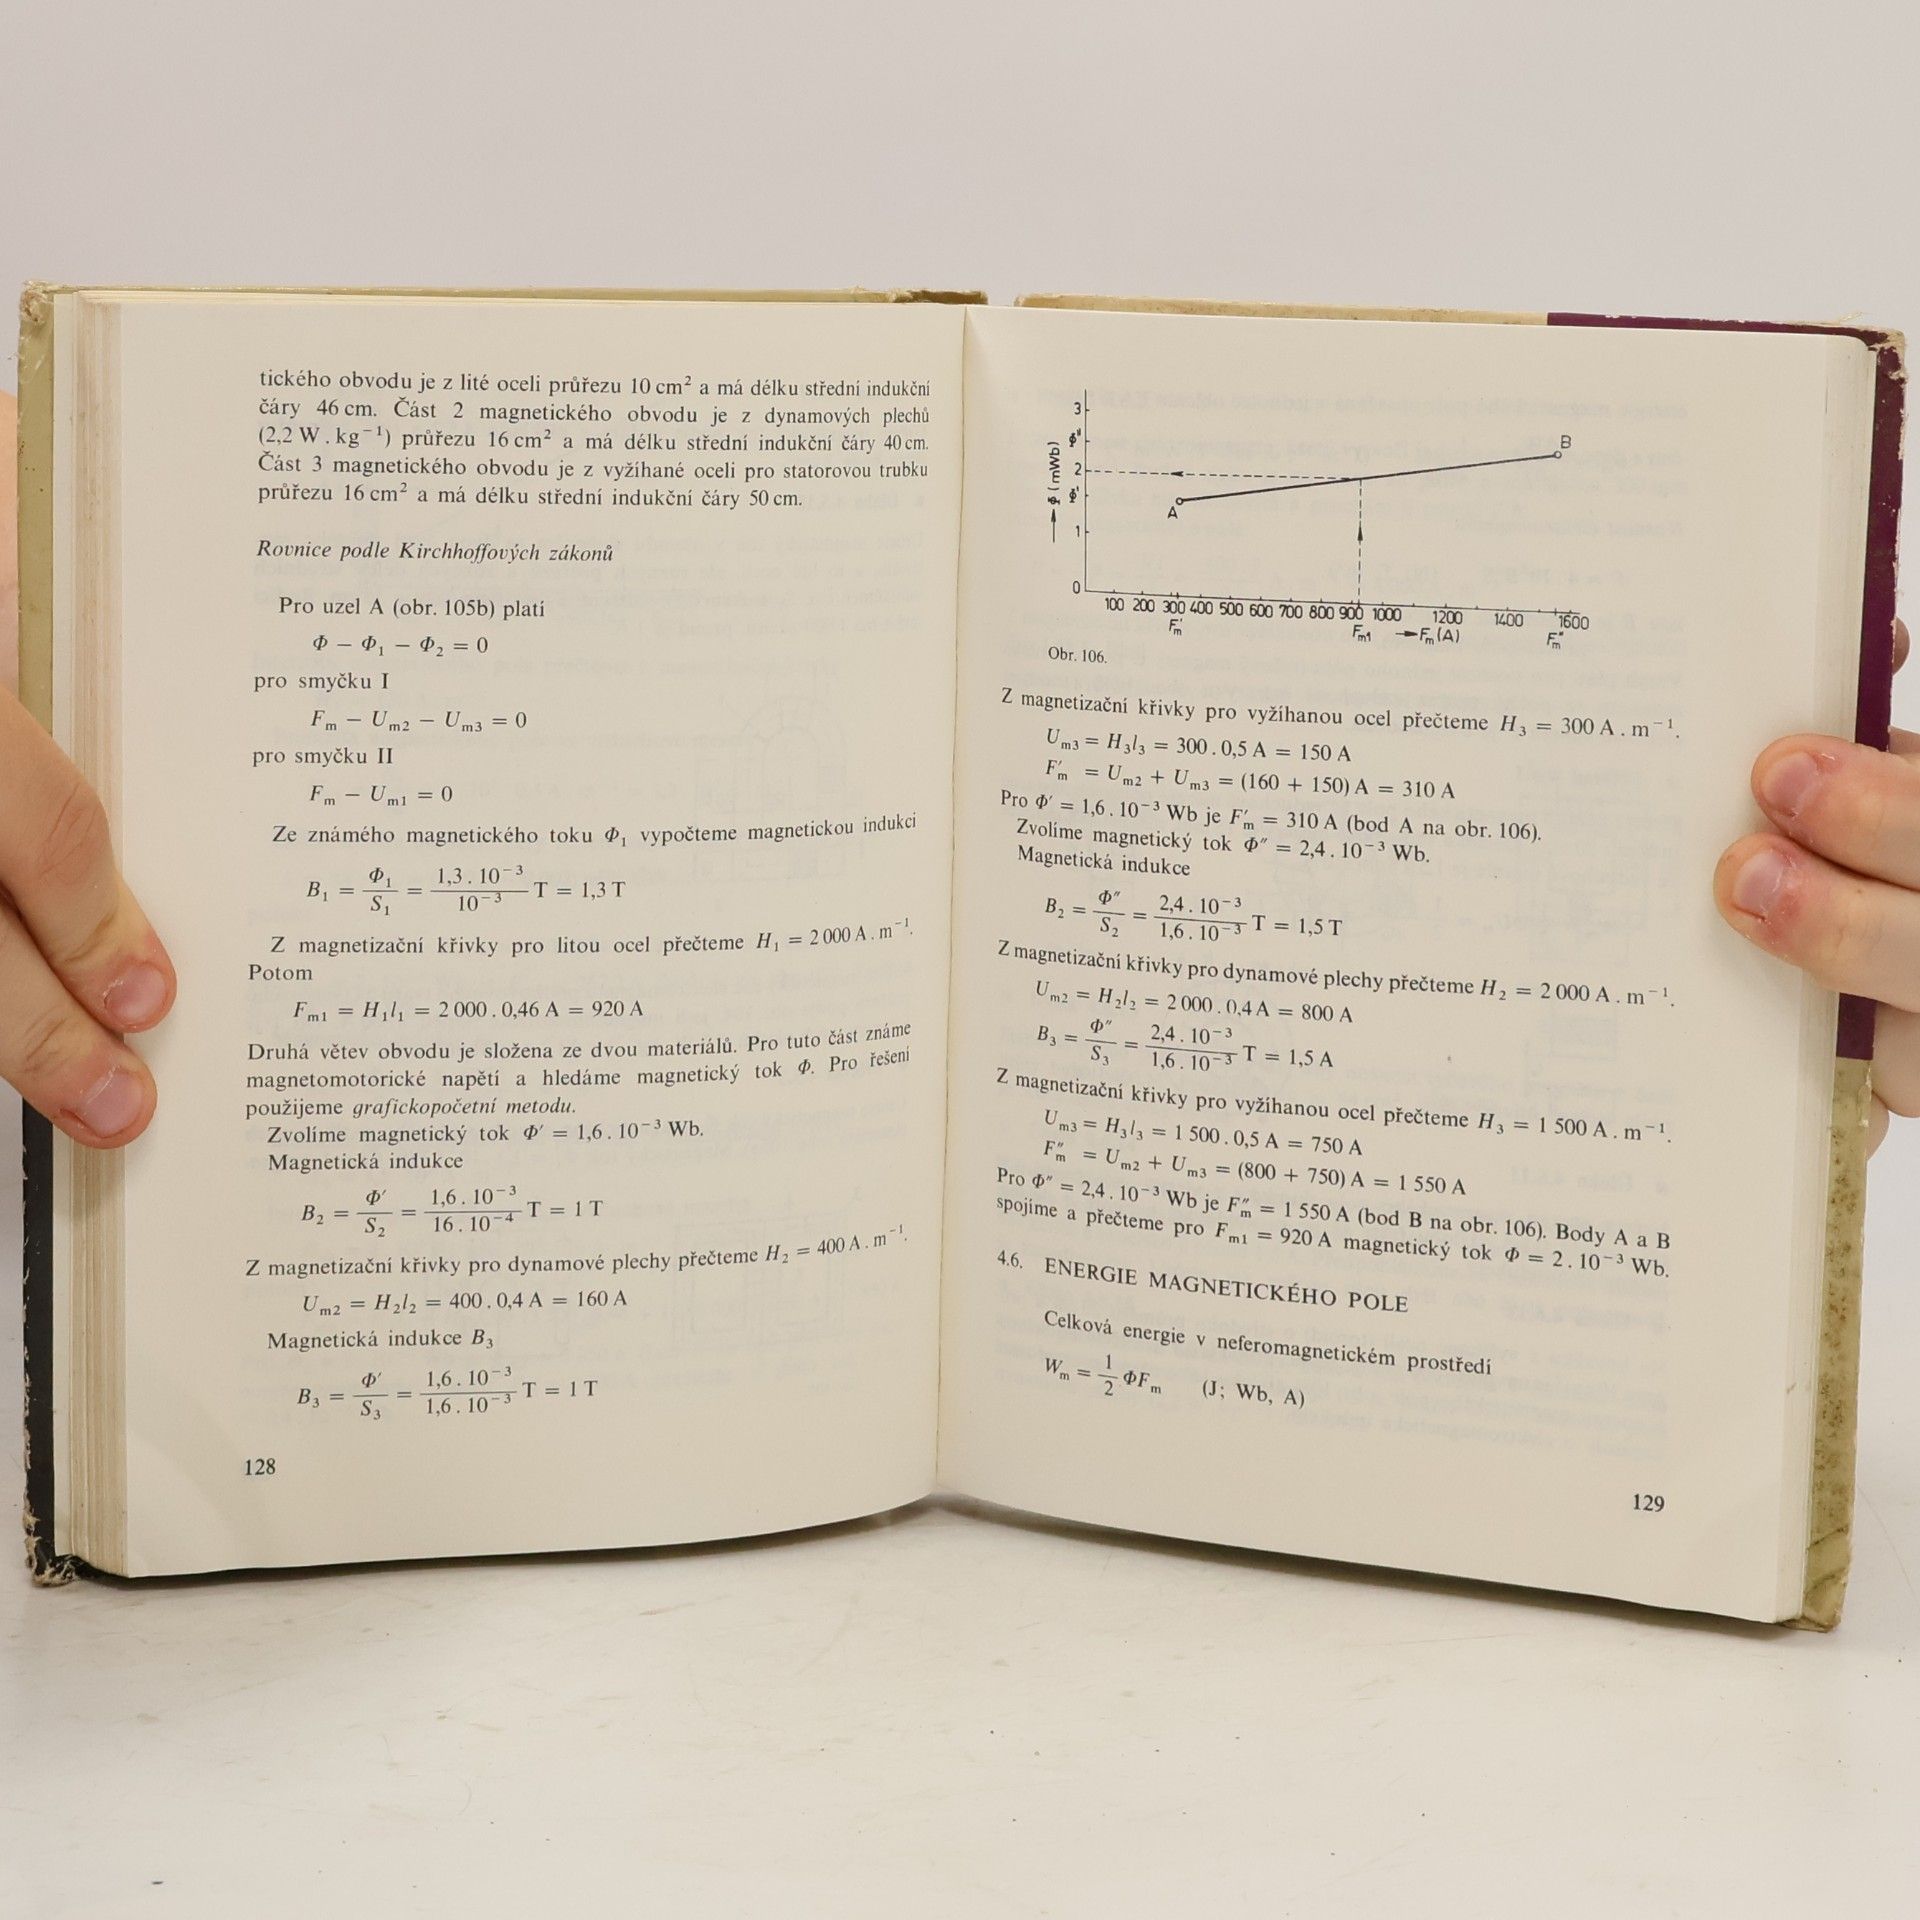 tického obvodu je z lité oceli průřezu 10 cm² a má délku střední indukční
čáry 46 cm. Část 2 magnetického obvodu je z dynamových plechů
(2,2 W . kg⁻¹) průřezu 16 cm² a má délku střední indukční čáry 40 cm.
Část 3 magnetického obvodu je z vyžíhané oceli pro statorovou trubku
průřezu 16 cm² a má délku střední indukční čáry 50 cm.
Rovnice podle Kirchhoffových zákonů
Pro uzel A (obr. 105b) platí
Φ − Φ₁ − Φ₂ = 0
pro smyčku I
Fₘ − Uₘ₂ − Uₘ₃ = 0
pro smyčku II
Fₘ − Uₘ₁ = 0
Ze známého magnetického toku Φ₁ vypočteme magnetickou indukci
B₁ = Φ₁/S₁ = 1,3 . 10⁻³/10⁻³ T = 1,3 T
Z magnetizační křivky pro litou ocel přečteme H₁ = 2 000 A . m⁻¹.
Potom
Fₘ₁ = H₁l₁ = 2 000 . 0,46 A = 920 A
Druhá větev obvodu je složena ze dvou materiálů. Pro tuto část známe
magnetomotorické napětí a hledáme magnetický tok Φ. Pro řešení
použijeme grafickopočetní metodu.
Zvolíme magnetický tok Φ′ = 1,6 . 10⁻³ Wb.
Magnetická indukce
B₂ = Φ′/S₂ = 1,6 . 10⁻³/16 . 10⁻⁴ T = 1 T
Z magnetizační křivky pro dynamové plechy přečteme H₂ = 400 A . m⁻¹.
Uₘ₂ = H₂l₂ = 400 . 0,4 A = 160 A
Magnetická indukce B₃
B₃ = Φ′/S₃ = 1,6 . 10⁻³/1,6 . 10⁻³ T = 1 T
128
3
Φ″
2
Φ′
1
0
Φ (mWb)
A
B
100 200 300 400 500 600 700 800 900 1000 1200 1400 1600
F′ₘ Fₘ₁ Fₘ (A) F″ₘ
Obr. 106.
Z magnetizační křivky pro vyžíhanou ocel přečteme H₃ = 300 A . m⁻¹.
Uₘ₃ = H₃l₃ = 300 . 0,5 A = 150 A
F′ₘ = Uₘ₂ + Uₘ₃ = (160 + 150) A = 310 A
Pro Φ′ = 1,6 . 10⁻³ Wb je F′ₘ = 310 A (bod A na obr. 106).
Zvolíme magnetický tok Φ″ = 2,4 . 10⁻³ Wb.
Magnetická indukce
B₂ = Φ″/S₂ = 2,4 . 10⁻³/1,6 . 10⁻³ T = 1,5 T
Z magnetizační křivky pro dynamové plechy přečteme H₂ = 2 000 A . m⁻¹.
Uₘ₂ = H₂l₂ = 2 000 . 0,4 A = 800 A
B₃ = Φ″/S₃ = 2,4 . 10⁻³/1,6 . 10⁻³ T = 1,5 A
Z magnetizační křivky pro vyžíhanou ocel přečteme H₃ = 1 500 A . m⁻¹.
Uₘ₃ = H₃l₃ = 1 500 . 0,5 A = 750 A
F″ₘ = Uₘ₂ + Uₘ₃ = (800 + 750) A = 1 550 A
Pro Φ″ = 2,4 . 10⁻³ Wb je F″ₘ = 1 550 A (bod B na obr. 106). Body A a B
spojíme a přečteme pro Fₘ₁ = 920 A magnetický tok Φ = 2 . 10⁻³ Wb.
4.6. ENERGIE MAGNETICKÉHO POLE
Celková energie v neferomagnetickém prostředí
Wₘ = 1/2 ΦFₘ (J; Wb, A)
129